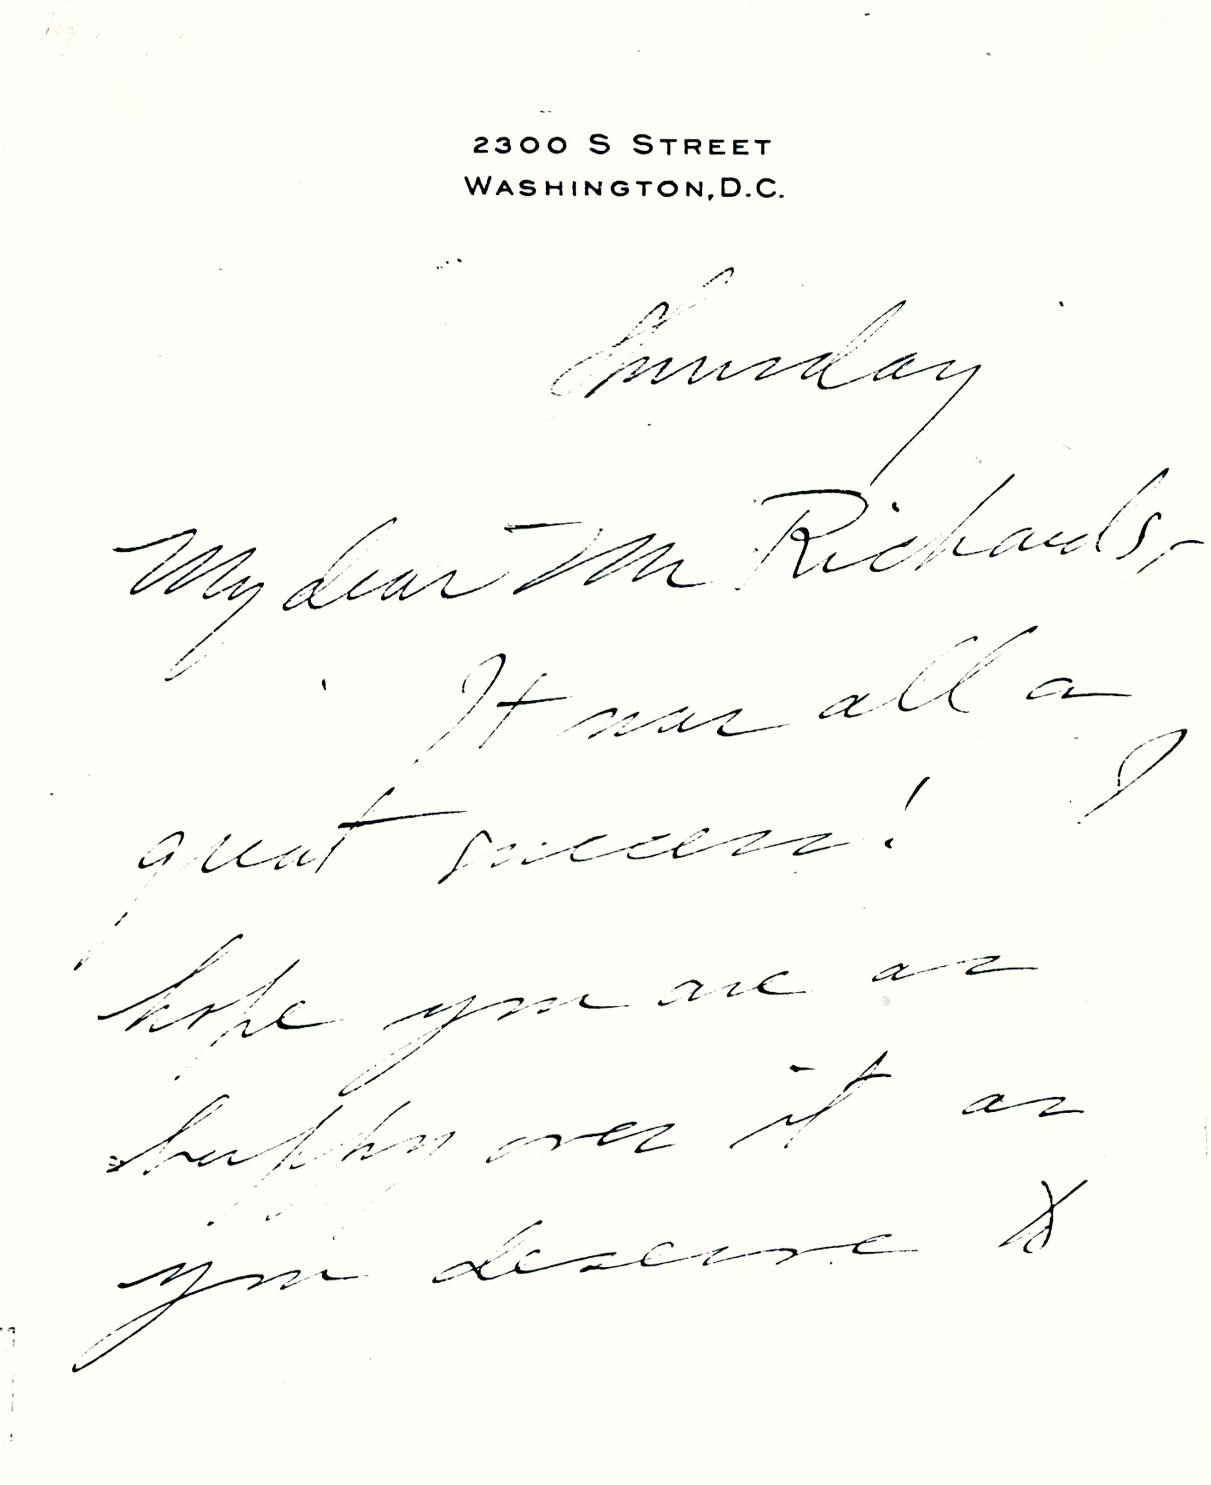 2300 S STREET
WASHINGTON, D.C.
Thursday
My dear Mr Richards,
It was all a
great success! I
hope you are as
happy over it as
you deserve to